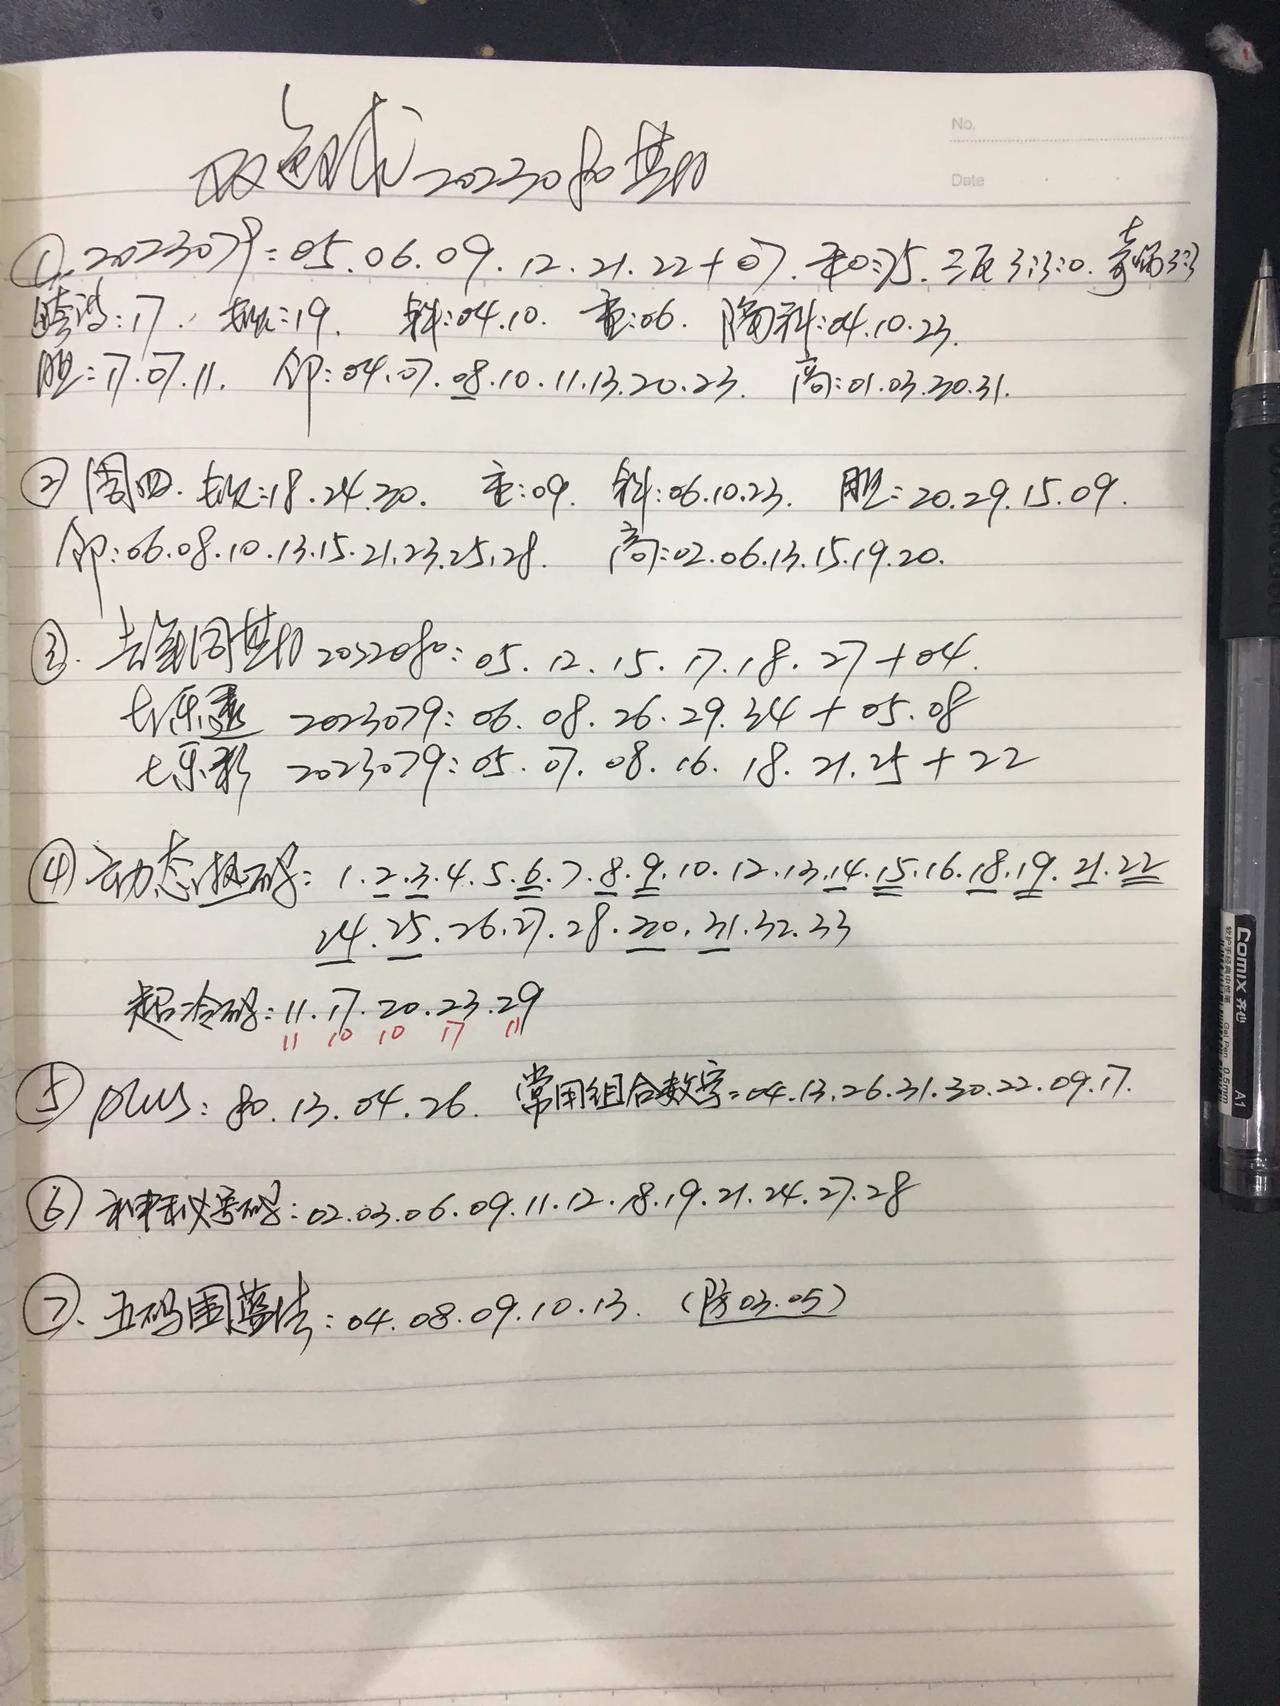 No.
Date
双色球2023080期
① 2023079:05.06.09.12.21.22+07. 和:75. 三区3:3:0. 奇偶3:3
跨度:17. 热:19. 斜:04.10. 重:06. 隔斜:04.10.23.
胆:17.07.11. 邻:04.07.08.10.11.13.20.23. 高:01.03.30.31.
② 周四. :18.24.30. 重:09. 斜:06.10.23. 胆:20.29.15.09.
邻:06.08.10.13.15.21.23.25.28. 高:02.06.13.15.19.20.
③. 去年同期 2022080:05.12.15.17.18.27+04.
大乐透 2023079:06.08.26.29.34+05.08
七乐彩 2023079:05.07.08.16.18.21.25+22
④ 动态热码:1.2.3.4.5.6.7.8.9.10.12.13.14.15.16.18.19.21.22
24.25.26.27.28.30.31.32.33
超冷码:11.17.20.23.29
11 10 10 17 11
⑤ plus:80.13.04.26. 常用组合数字:04.13.26.31.30.22.09.17.
⑥ 神秘号码:02.03.06.09.11.12.18.19.21.24.27.28
⑦. 五码围蓝法:04.08.09.10.13. (防03.05)
Comix 齐心
Gel Pen 0.5mm
A1